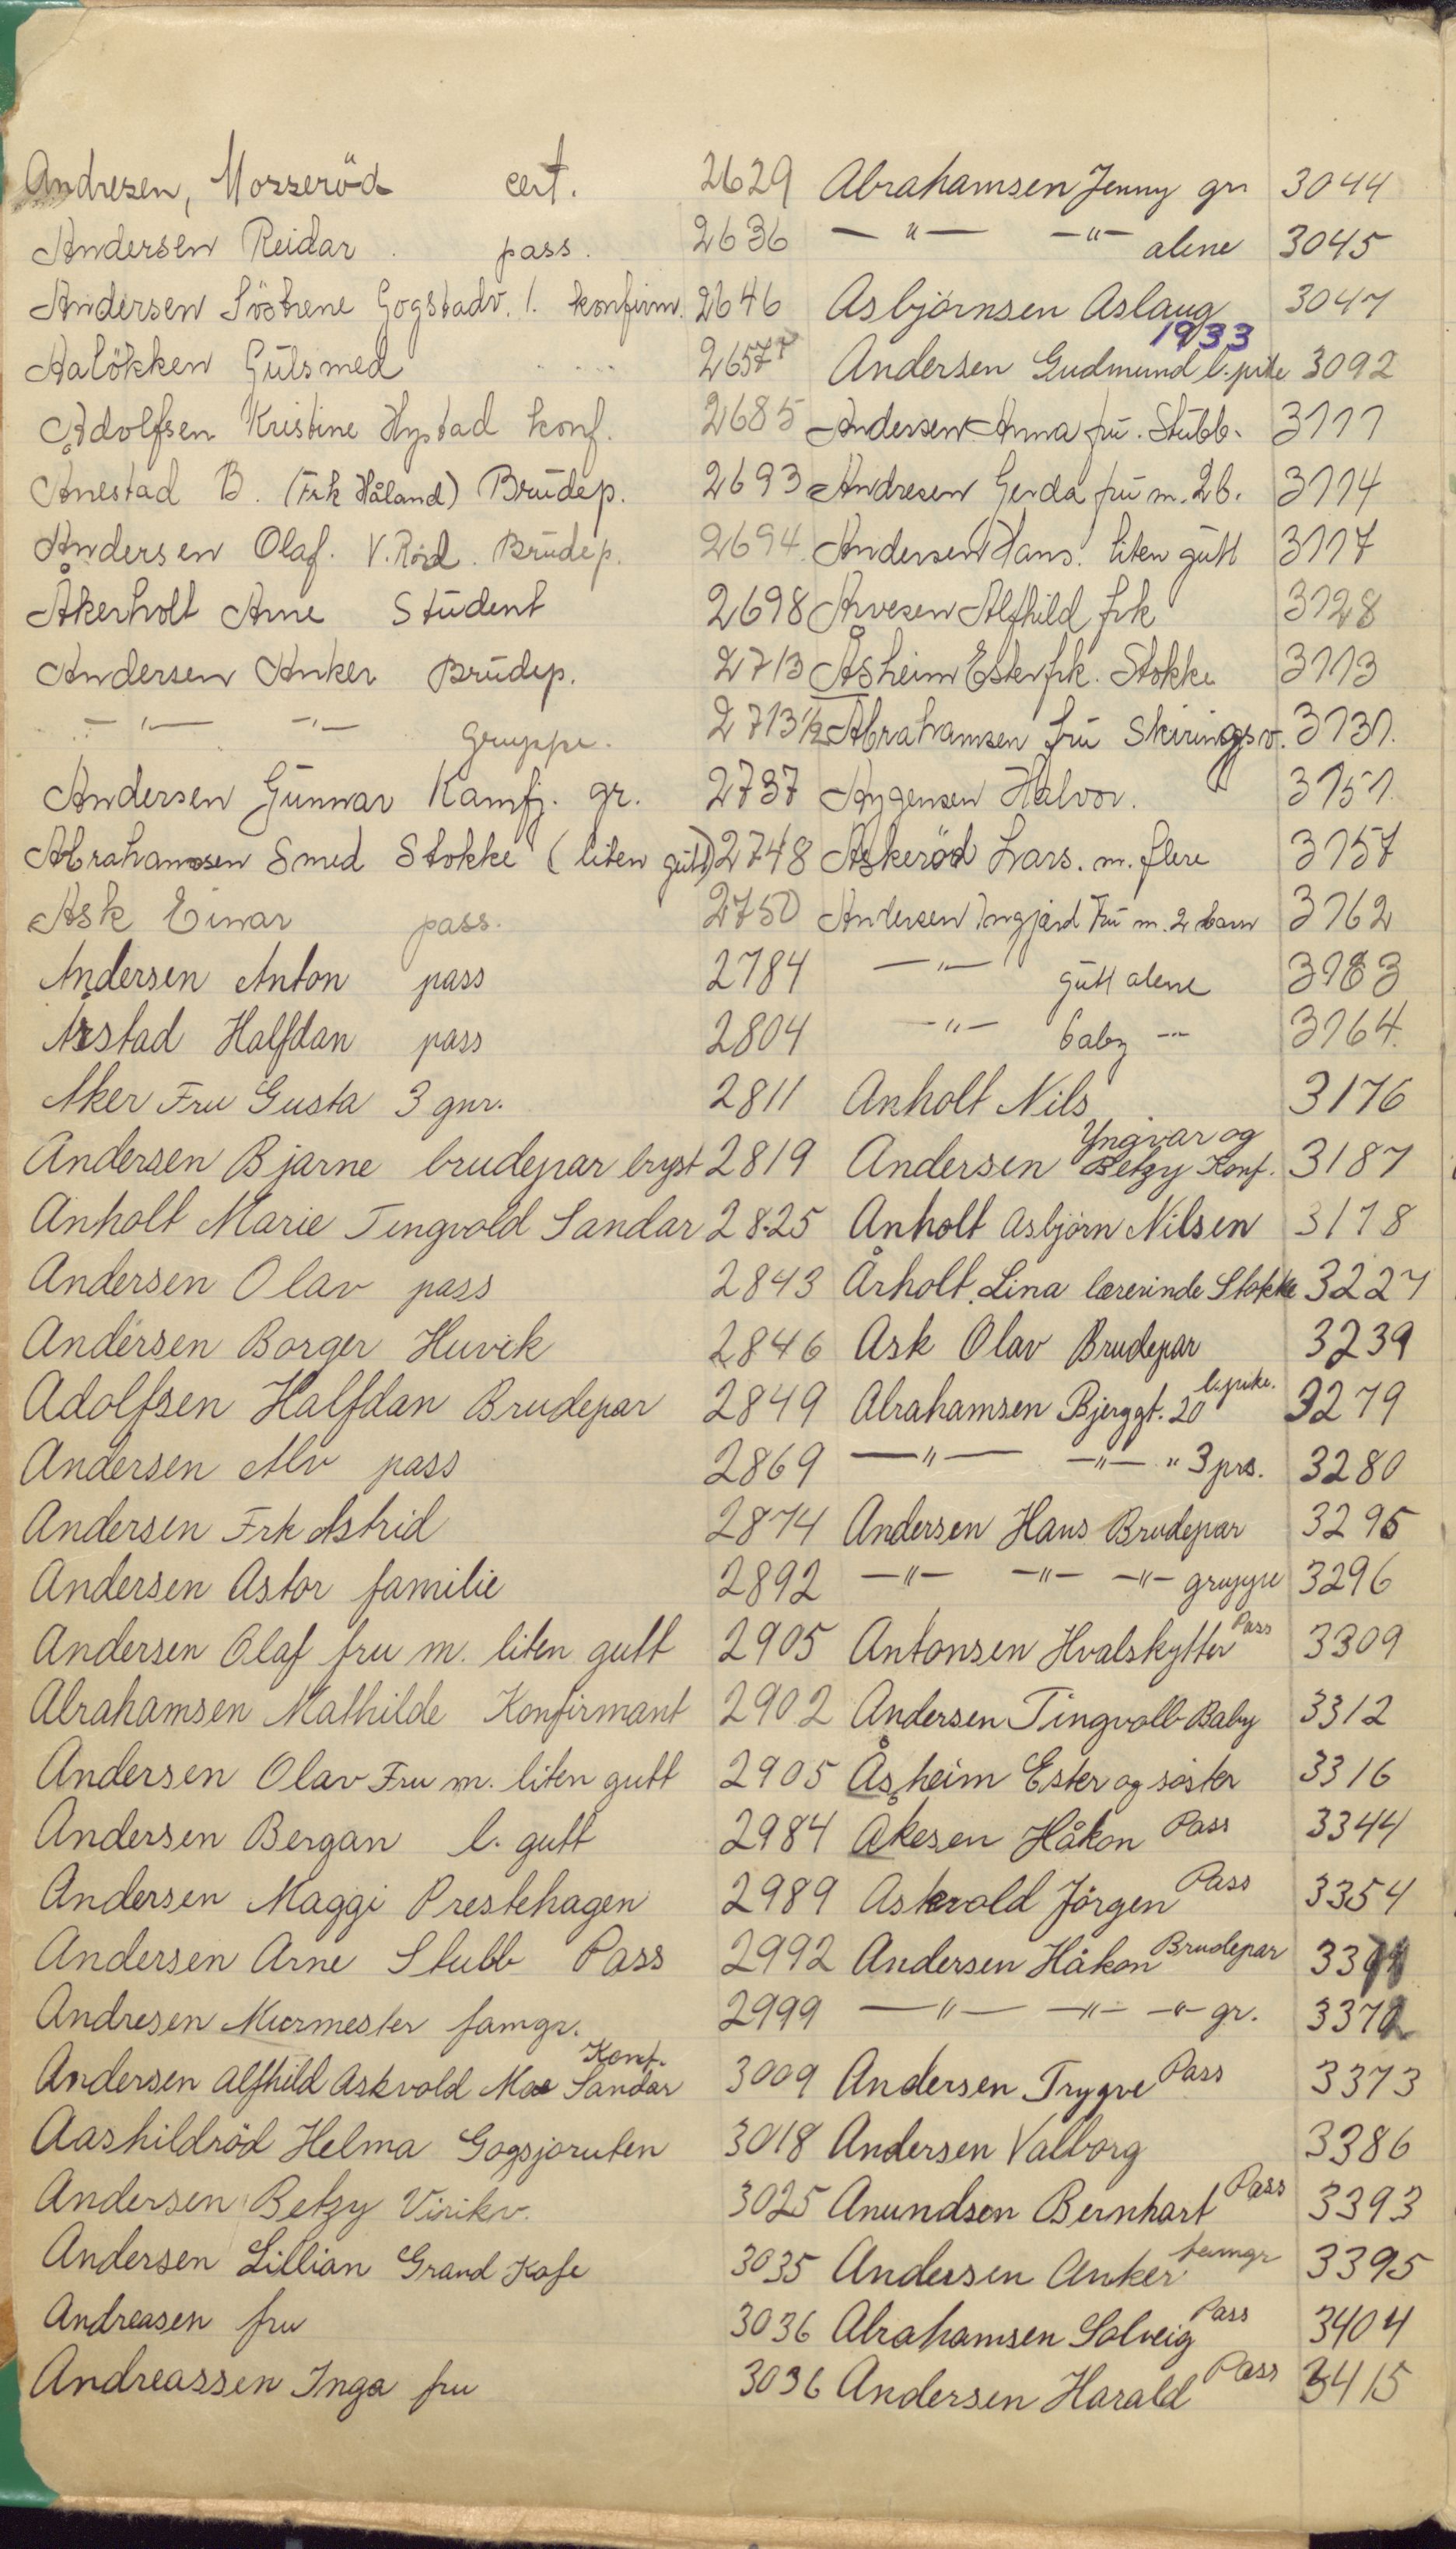 Andresen, Mosseröd cert. 2629
Andersen Reidar pass. 2636
Andersen Söstrene Gogstadv. 1. konfirm. 2646
Aalökken Gulsmed 2657
Adolfsen Kristine Hystad konf. 2685
Ånestad B. (Frk Håland) Brudep. 2693
Andersen Olaf. V. Råd. Brudep. 2694
Åkerholt Arne Student 2698
Andersen Anker Brudep. 2713
— " — — " — Gruppe. 2713 1/2
Andersen Gunnar Kamfj. gr. 2737
Abrahamsen Smed Stokke (liten gutt) 2748
Ask Einar pass. 2750
Andersen Anton pass 2784
Årstad Halfdan pass 2804
Aker Fru Gusta 3 gnr. 2811
Andersen Bjarne brudepar bryst 2819
Anholt Marie Tingvold Sandar 2825
Andersen Olav pass 2843
Andersen Borger Huvik 2846
Adolfsen Halfdan Brudepar 2849
Andersen Alv pass 2869
Andersen Frk Astrid 2874
Andersen Astor familie 2892
Andersen Olaf fru m. liten gutt 2905
Abrahamsen Mathilde Konfirmant 2902
Andersen Olav Fru m. liten gutt 2905
Andersen Bergan l. gutt 2984
Andersen Maggi Prestehagen 2989
Andersen Arne Stubb Pass 2992
Andresen Murmester famgr. 2999
Konf.
Andersen Alfhild Askvold Moe Sandar 3009
Aashildröd Helma Gogsjoruten 3018
Andersen Betzy Virikv. 3025
Andersen Lillian Grand Kafe 3035
Andreasen fru 3036
Andreassen Inga fru 3036
Abrahamsen Jenny gr 3044
— " — — " — alene 3045
Asbjørnsen Aslaug 3047
1933
Andersen Gudmund l. pike 3092
Andersen Anna fru. Stubb. 3111
Andresen Gerda fru m. 2 b. 3114
Andersen Hans. liten gutt 3117
Arvesen Alfhild frk 3128
Åsheim Ester frk. Stokke 3113
Abrahamsen fru Skiringsv. 3131.
Aagensen Halvor. 3151.
Askeröd Lars. m. flere 3157
Andersen Ingjerd Fru m. 2 barn 3162
— " — gutt alene 3163
— " — baby — " — 3164.
Anholt Nils 3176
Yngvar og
Andersen Betzy Konf. 3187
Anholt Asbjørn Nilsen 3178
Årholt Lina lærerinde Stokke 3227
Ask Olav Brudepar 3239
Abrahamsen Bjerggt. 20 l. pike. 3279
— " — — " — " 3 prs. 3280
Andersen Hans Brudepar 3295
— " — — " — — " — gruppe 3296
Antonsen Hvalskytter Pass 3309
Andersen Tingvoll Baby 3312
Åsheim Ester og søster 3316
Åkesen Håkon Pass 3344
Askvold Jörgen Pass 3354
Andersen Håkon Brudepar 3371
— " — — " — — " — gr. 3372
Andersen Trygve Pass 3373
Andersen Valborg 3386
Anundsen Bernhart Pass 3393
Andersen Anker famgr 3395
Abrahamsen Solveig Pass 3404
Andersen Harald Pass 3415